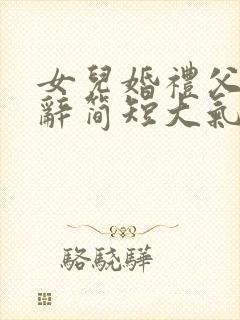 女兒婚禮父
辭簡短大氣
駱駝驊